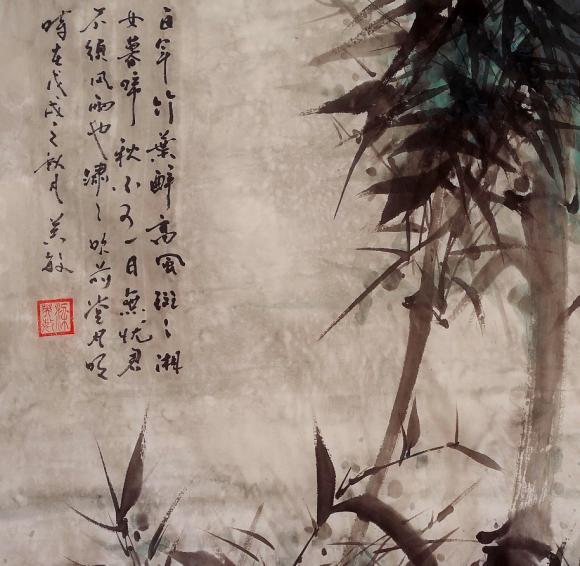 百年竹葉醉高風斑〻湘
女暮啼秋不可一日無忧君
不須風雨也潚〻吹前堂月明
時在戊戌之秋月英敏